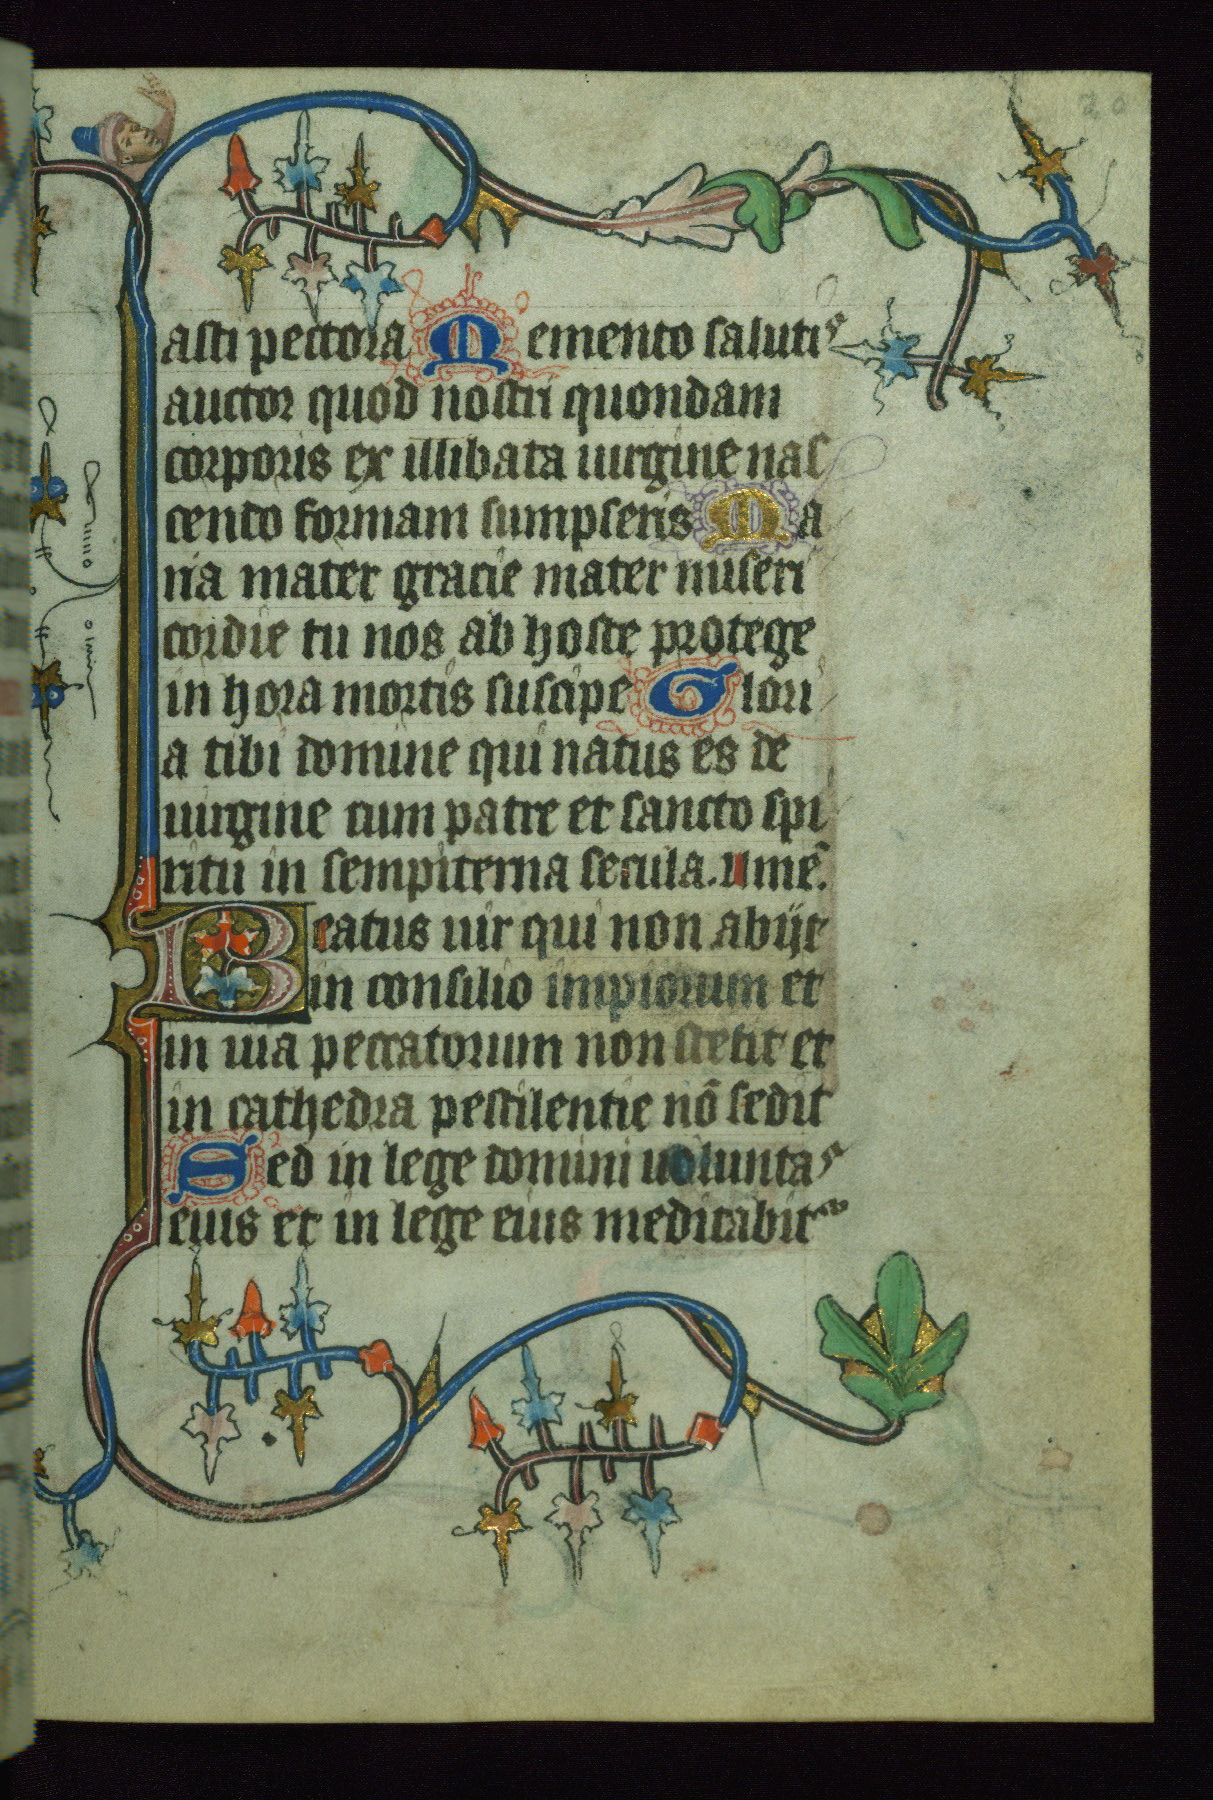 20
asti pectora Memento saluti
auctor quod nostri quondam
corporis ex illibata uirgine nas
cendo formam sumpseris Ma
ria mater gracie mater miseri
cordie tu nos ab hoste protege
in hora mortis suscipe Glori
a tibi domine qui natus es de
uirgine cum patre et sancto spi
ritu in sempiterna secula. Ame
Beatus uir qui non abijt
in consilio impiorum et
in uia peccatorum non stetit et
in cathedra pestilentie nō sedit
Sed in lege domini uoluntas
eius et in lege eius meditabit